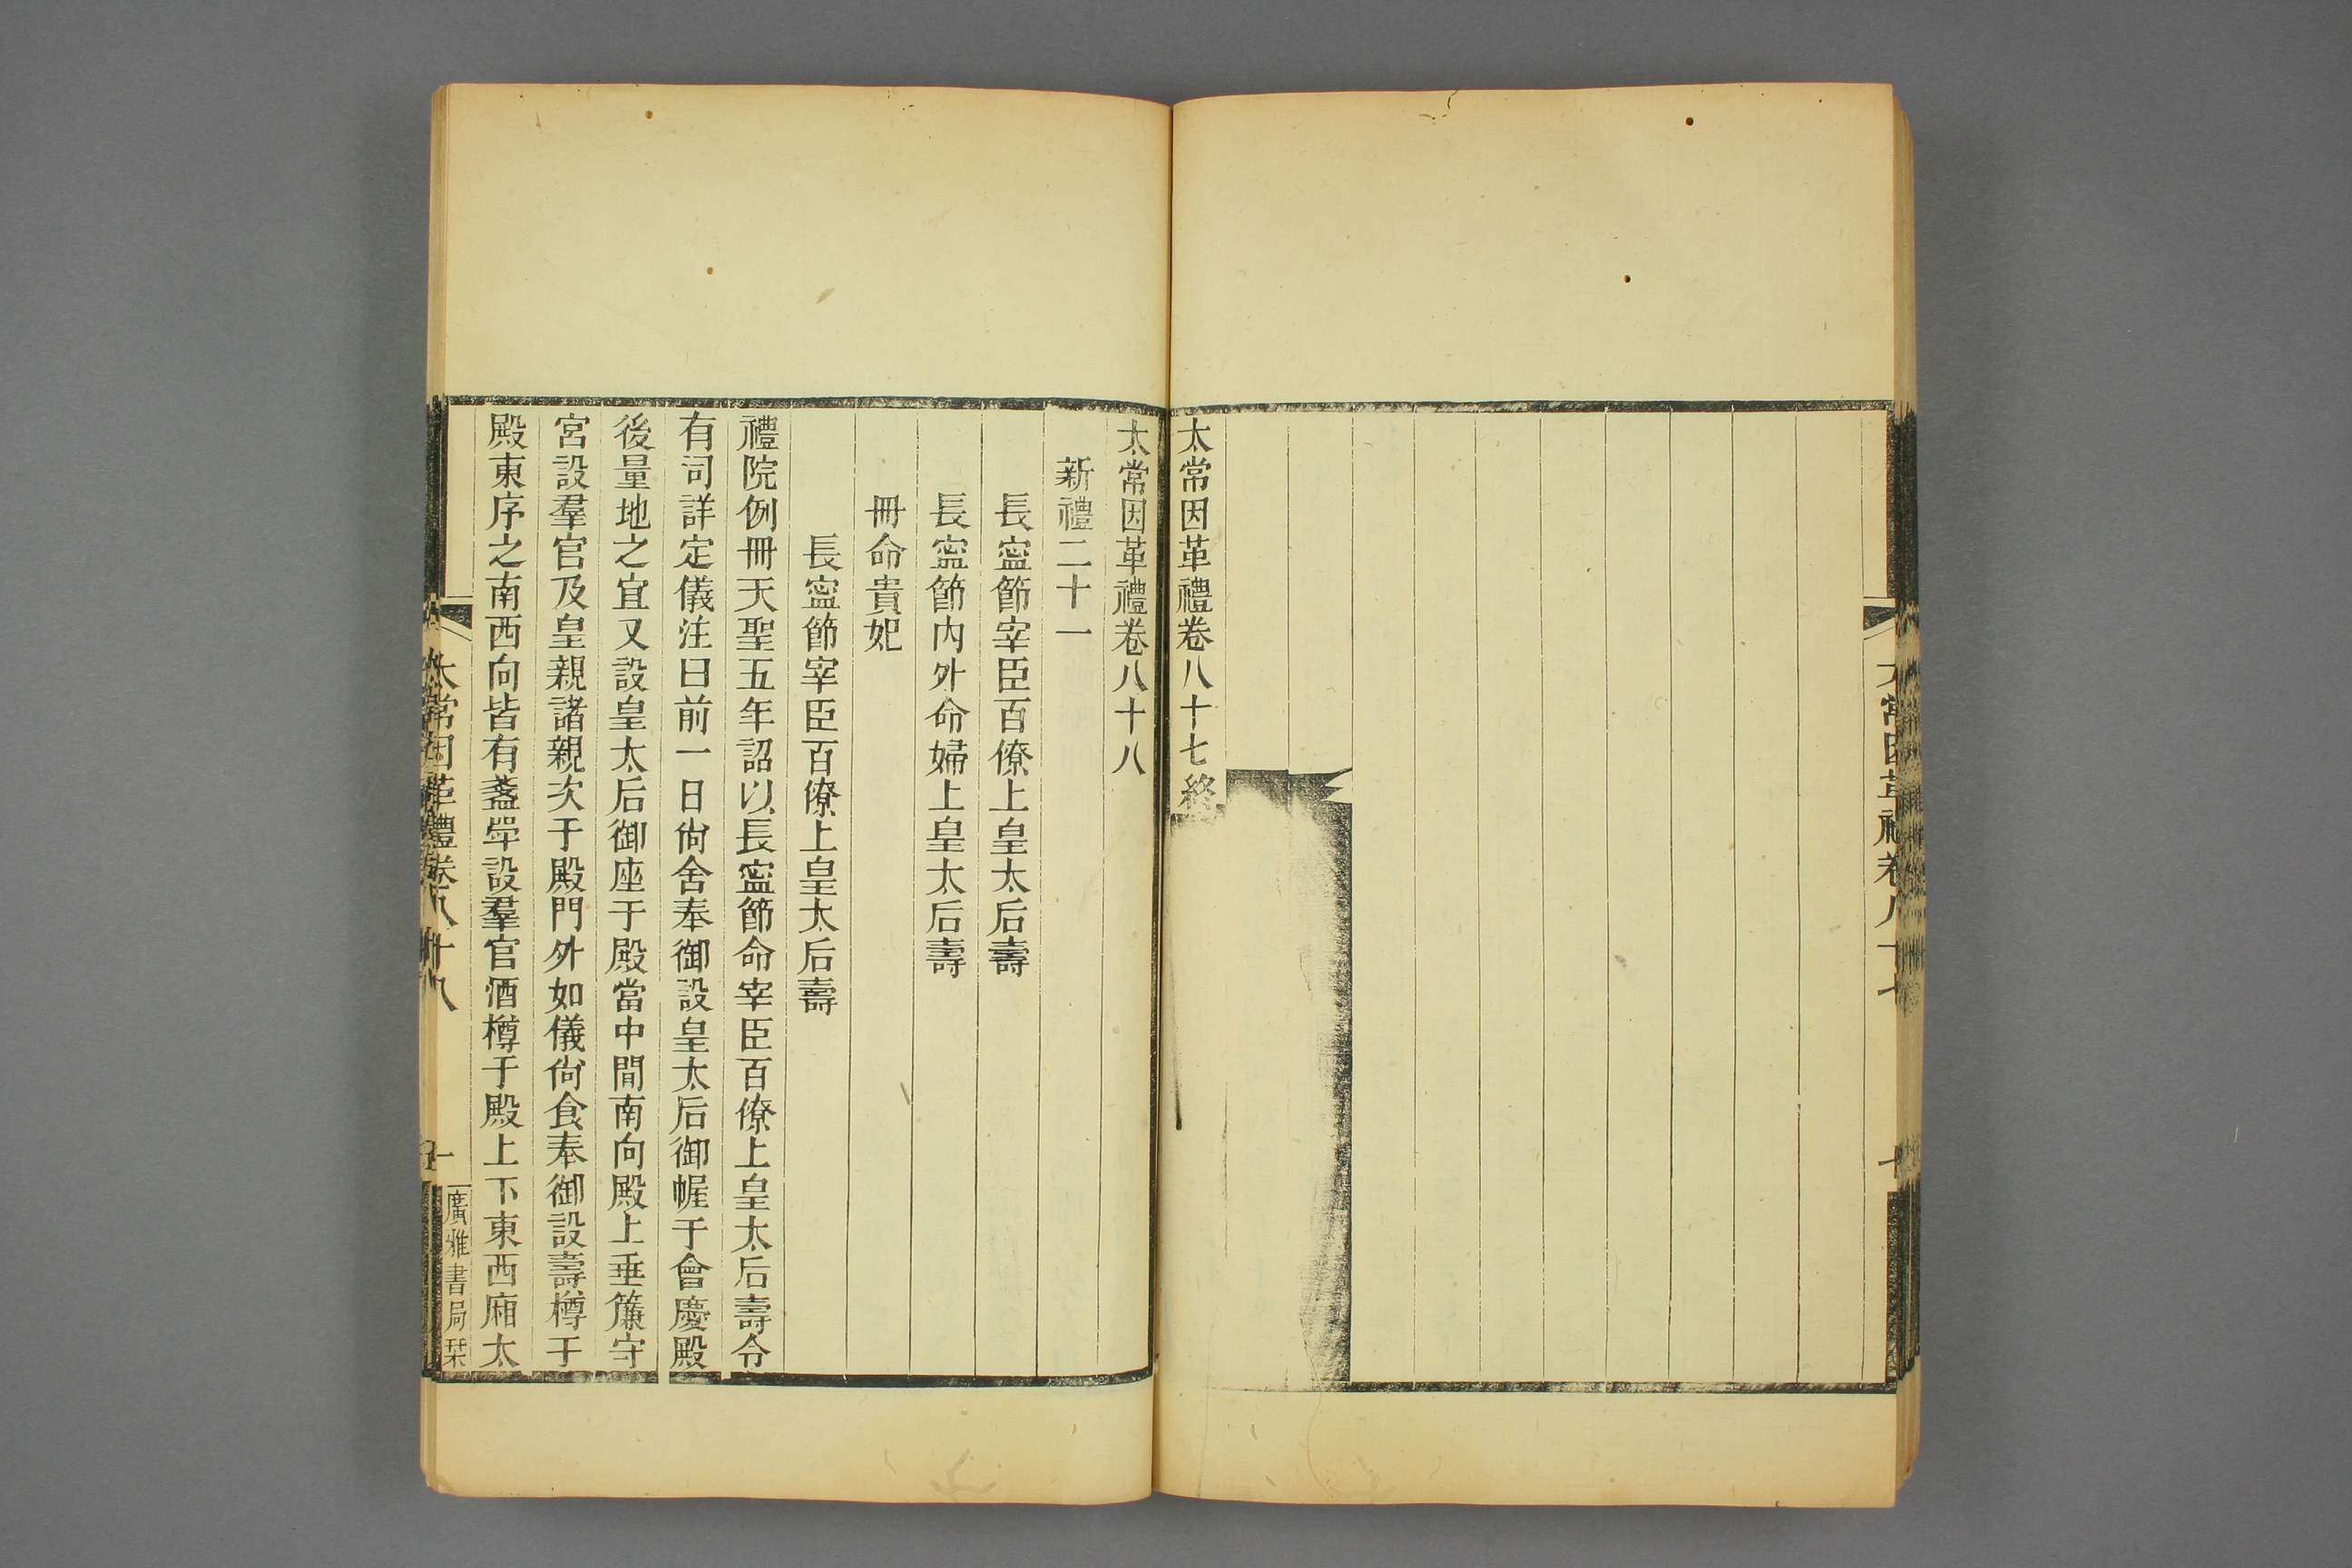 太常因革禮卷八十七
太常因革禮卷八十七終
太常因革禮卷八十八
新禮二十一
長寍節宰臣百僚上皇太后壽
長寍節內外命婦上皇太后壽
冊命貴妃
長寍節宰臣百僚上皇太后壽
禮院例冊天聖五年詔以長寍節命宰臣百僚上皇太后壽令
有司詳定儀注曰前一日尙舍奉御設皇太后御幄于會慶殿
後量地之宜又設皇太后御座于殿當中間南向殿上垂簾守
宮設羣官及皇親諸親次于殿門外如儀尙食奉御設壽樽于
殿東序之南西向皆有盞斝設羣官酒樽于殿上下東西廂太
太常因革禮卷八十八
一
廣雅書局栞